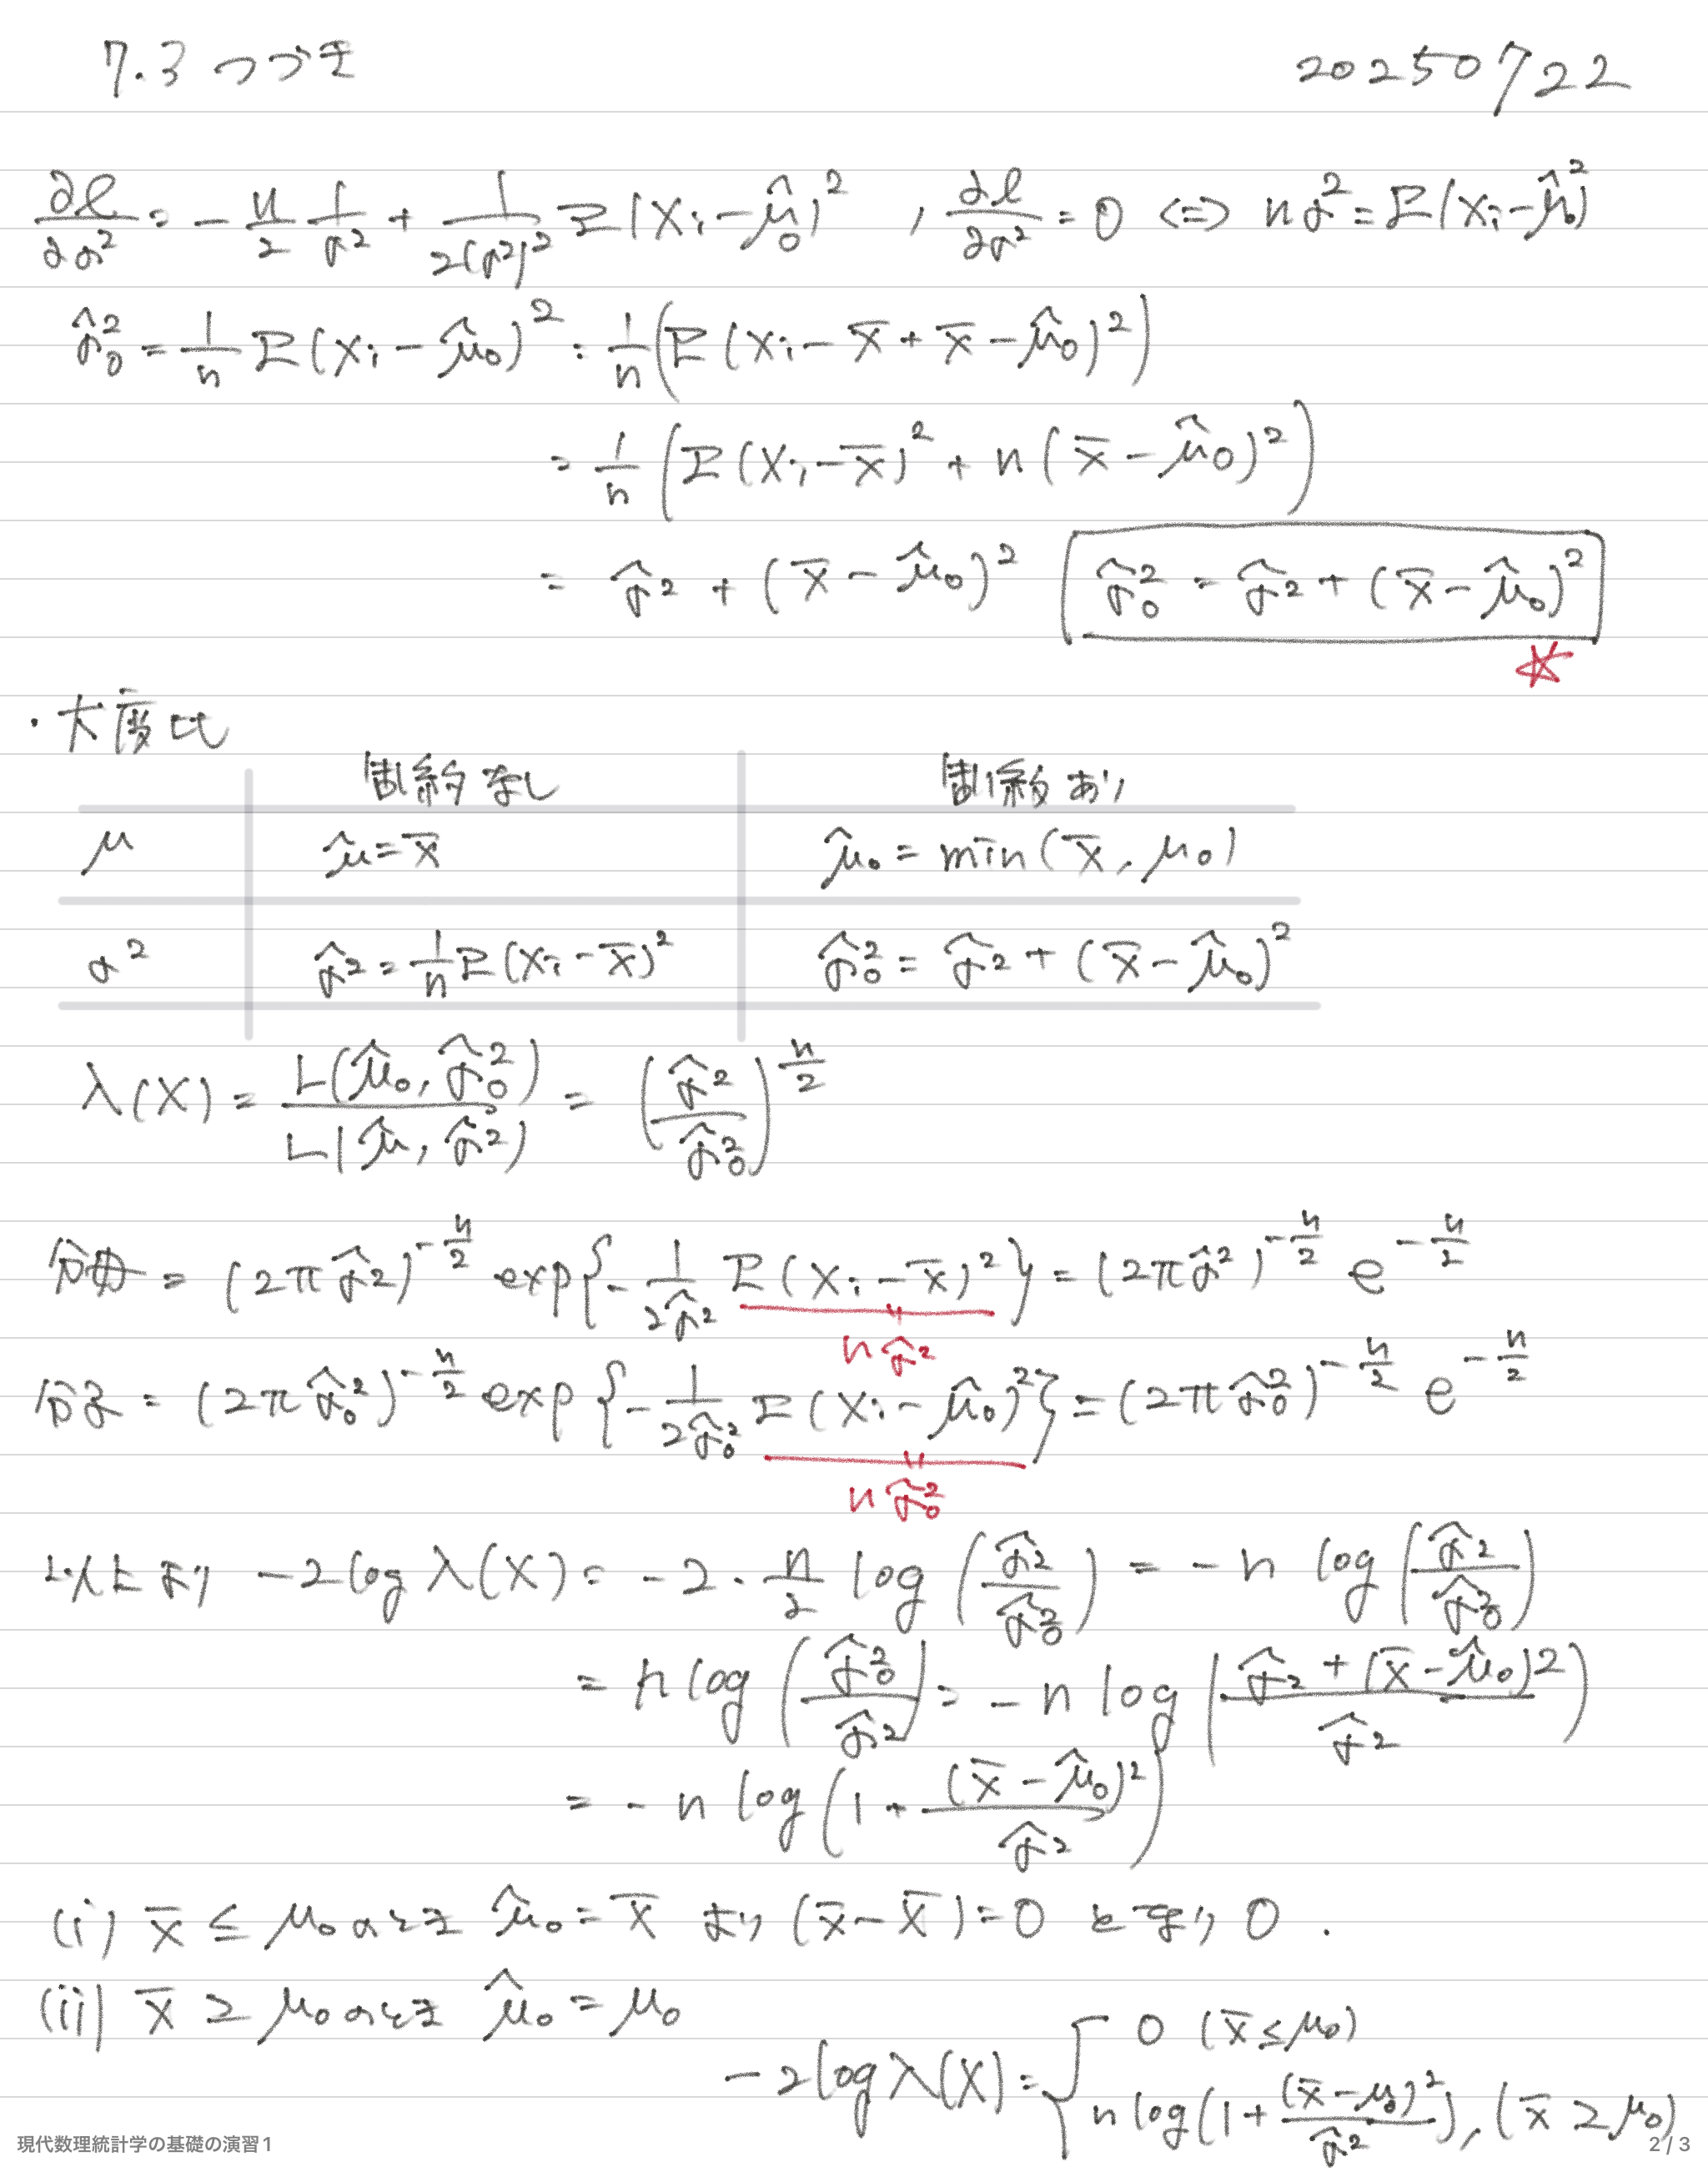 7.3 つづき 20250722
∂ℓ/∂σ² = - n/2 1/σ² + 1/2(σ²)² Σ(Xᵢ-μ̂₀)² , ∂ℓ/∂σ² = 0 <=> nσ² = Σ(Xᵢ-μ̂₀)²
σ̂₀² = 1/n Σ(Xᵢ-μ̂₀)² = 1/n (Σ(Xᵢ-X̄+X̄-μ̂₀)²)
= 1/n (Σ(Xᵢ-X̄)² + n(X̄-μ̂₀)²)
= σ̂² + (X̄-μ̂₀)² σ̂₀² = σ̂² + (X̄-μ̂₀)²
☆
・尤度比
制約なし 制約あり
μ μ̂=X̄ μ̂₀ = min(X̄, μ₀)
σ² σ̂² = 1/n Σ(Xᵢ-X̄)² σ̂₀² = σ̂² + (X̄-μ̂₀)²
λ(X) = L(μ̂₀, σ̂₀²)/L(μ̂, σ̂²) = (σ̂²/σ̂₀²)^(n/2)
分母 = (2πσ̂²)^(-n/2) exp{-1/2σ̂² Σ(Xᵢ-X̄)²} = (2πσ̂²)^(-n/2) e^(-n/2)
nσ̂²
分子 = (2πσ̂₀²)^(-n/2) exp{-1/2σ̂₀² Σ(Xᵢ-μ̂₀)²} = (2πσ̂₀²)^(-n/2) e^(-n/2)
nσ̂₀²
以上より -2logλ(X) = -2・n/2 log(σ̂²/σ̂₀²) = -n log(σ̂²/σ̂₀²)
= n log(σ̂₀²/σ̂²) = -n log((σ̂²+(X̄-μ̂₀)²)/σ̂²)
= -n log(1+(X̄-μ̂₀)²/σ̂²)
(i) X̄ ≤ μ₀のとき μ̂₀=X̄ より (X̄-X̄)=0 となり 0 .
(ii) X̄ ≥ μ₀のとき μ̂₀=μ₀
-2logλ(X) = { 0 (X̄≤μ₀)
n log(1+(X̄-μ₀)²/σ̂²), (X̄ ≥ μ₀)
現代数理統計学の基礎の演習1 2 / 3